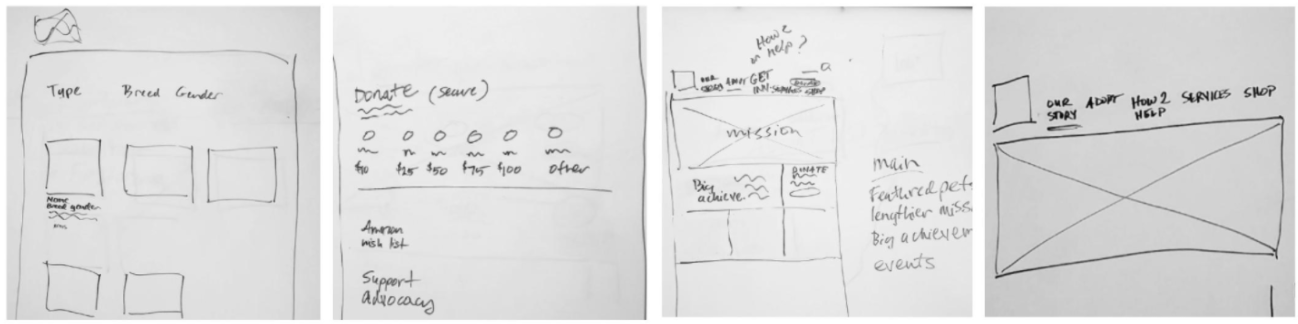 Type Breed Gender
Name
Breed gender
Donate (secure)
$10 $25 $50 $75 $100 other
American
wish list
Support
advocacy
How 2
Help?
OUR
STORY
ADOPT
GET
INV
SERVICES
SHOP
mission
Big
achieve.
DONATE
main
Featured pet
lengthier miss
Big achievem
events
OUR
STORY
ADOPT
HOW 2
HELP
SERVICES
SHOP